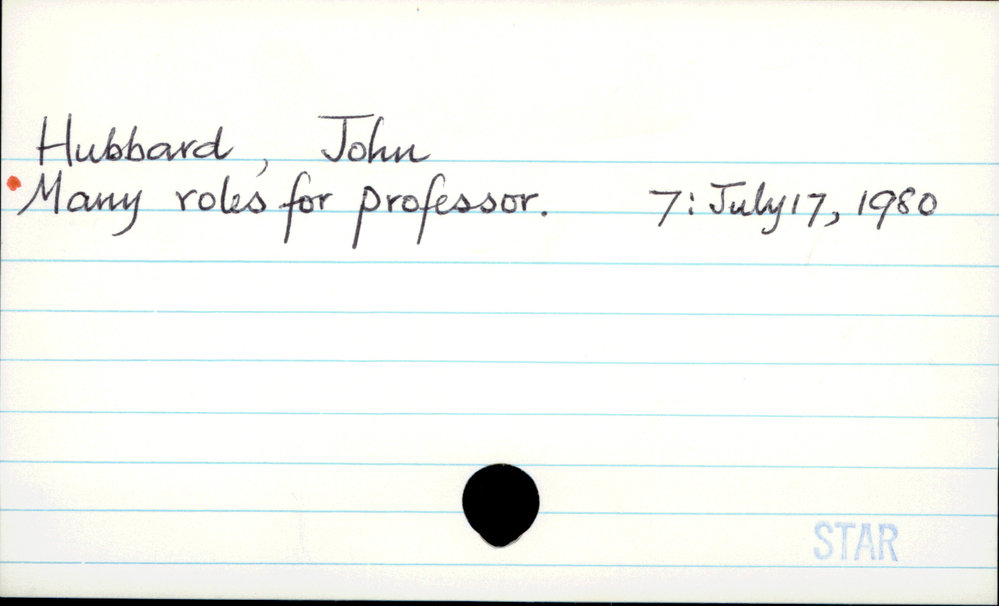 Hubbard, John
Many roles for professor. 7: July 17, 1980
STAR